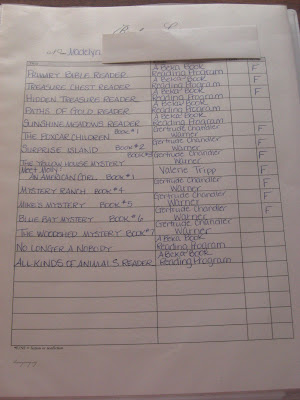 Madelyn
A Beka Book
PRIMARY BIBLE READER Reading Program F
A Beka Book
TREASURE CHEST READER Reading Program F
A Beka Book
HIDDEN TREASURE READER Reading Program F
A Beka Book
PATHS OF GOLD READER Reading Program
A Beka Book
SUNSHINE MEADOWS READER Reading Program
Book #1 Gertrude Chandler
THE BOXCAR CHILDREN Warner F
Book #2 Gertrude Chandler
SURPRISE ISLAND Warner F
Book #3 Gertrude Chandler
THE YELLOW HOUSE MYSTERY Warner F
Meet Molly:
AN AMERICAN GIRL Book #1 Valerie Tripp F
Gertrude Chandler
MYSTERY RANCH Book #4 Warner F
Gertrude Chandler
MIKE'S MYSTERY Book #5 Warner F
Gertrude Chandler
BLUE BAY MYSTERY Book #6 Warner F
Gertrude Chandler
THE WOODSHED MYSTERY Book #7 Warner
A Beka Book
NO LONGER A NOBODY Reading Program
A Beka Book
ALL KINDS OF ANIMALS READER Reading Program